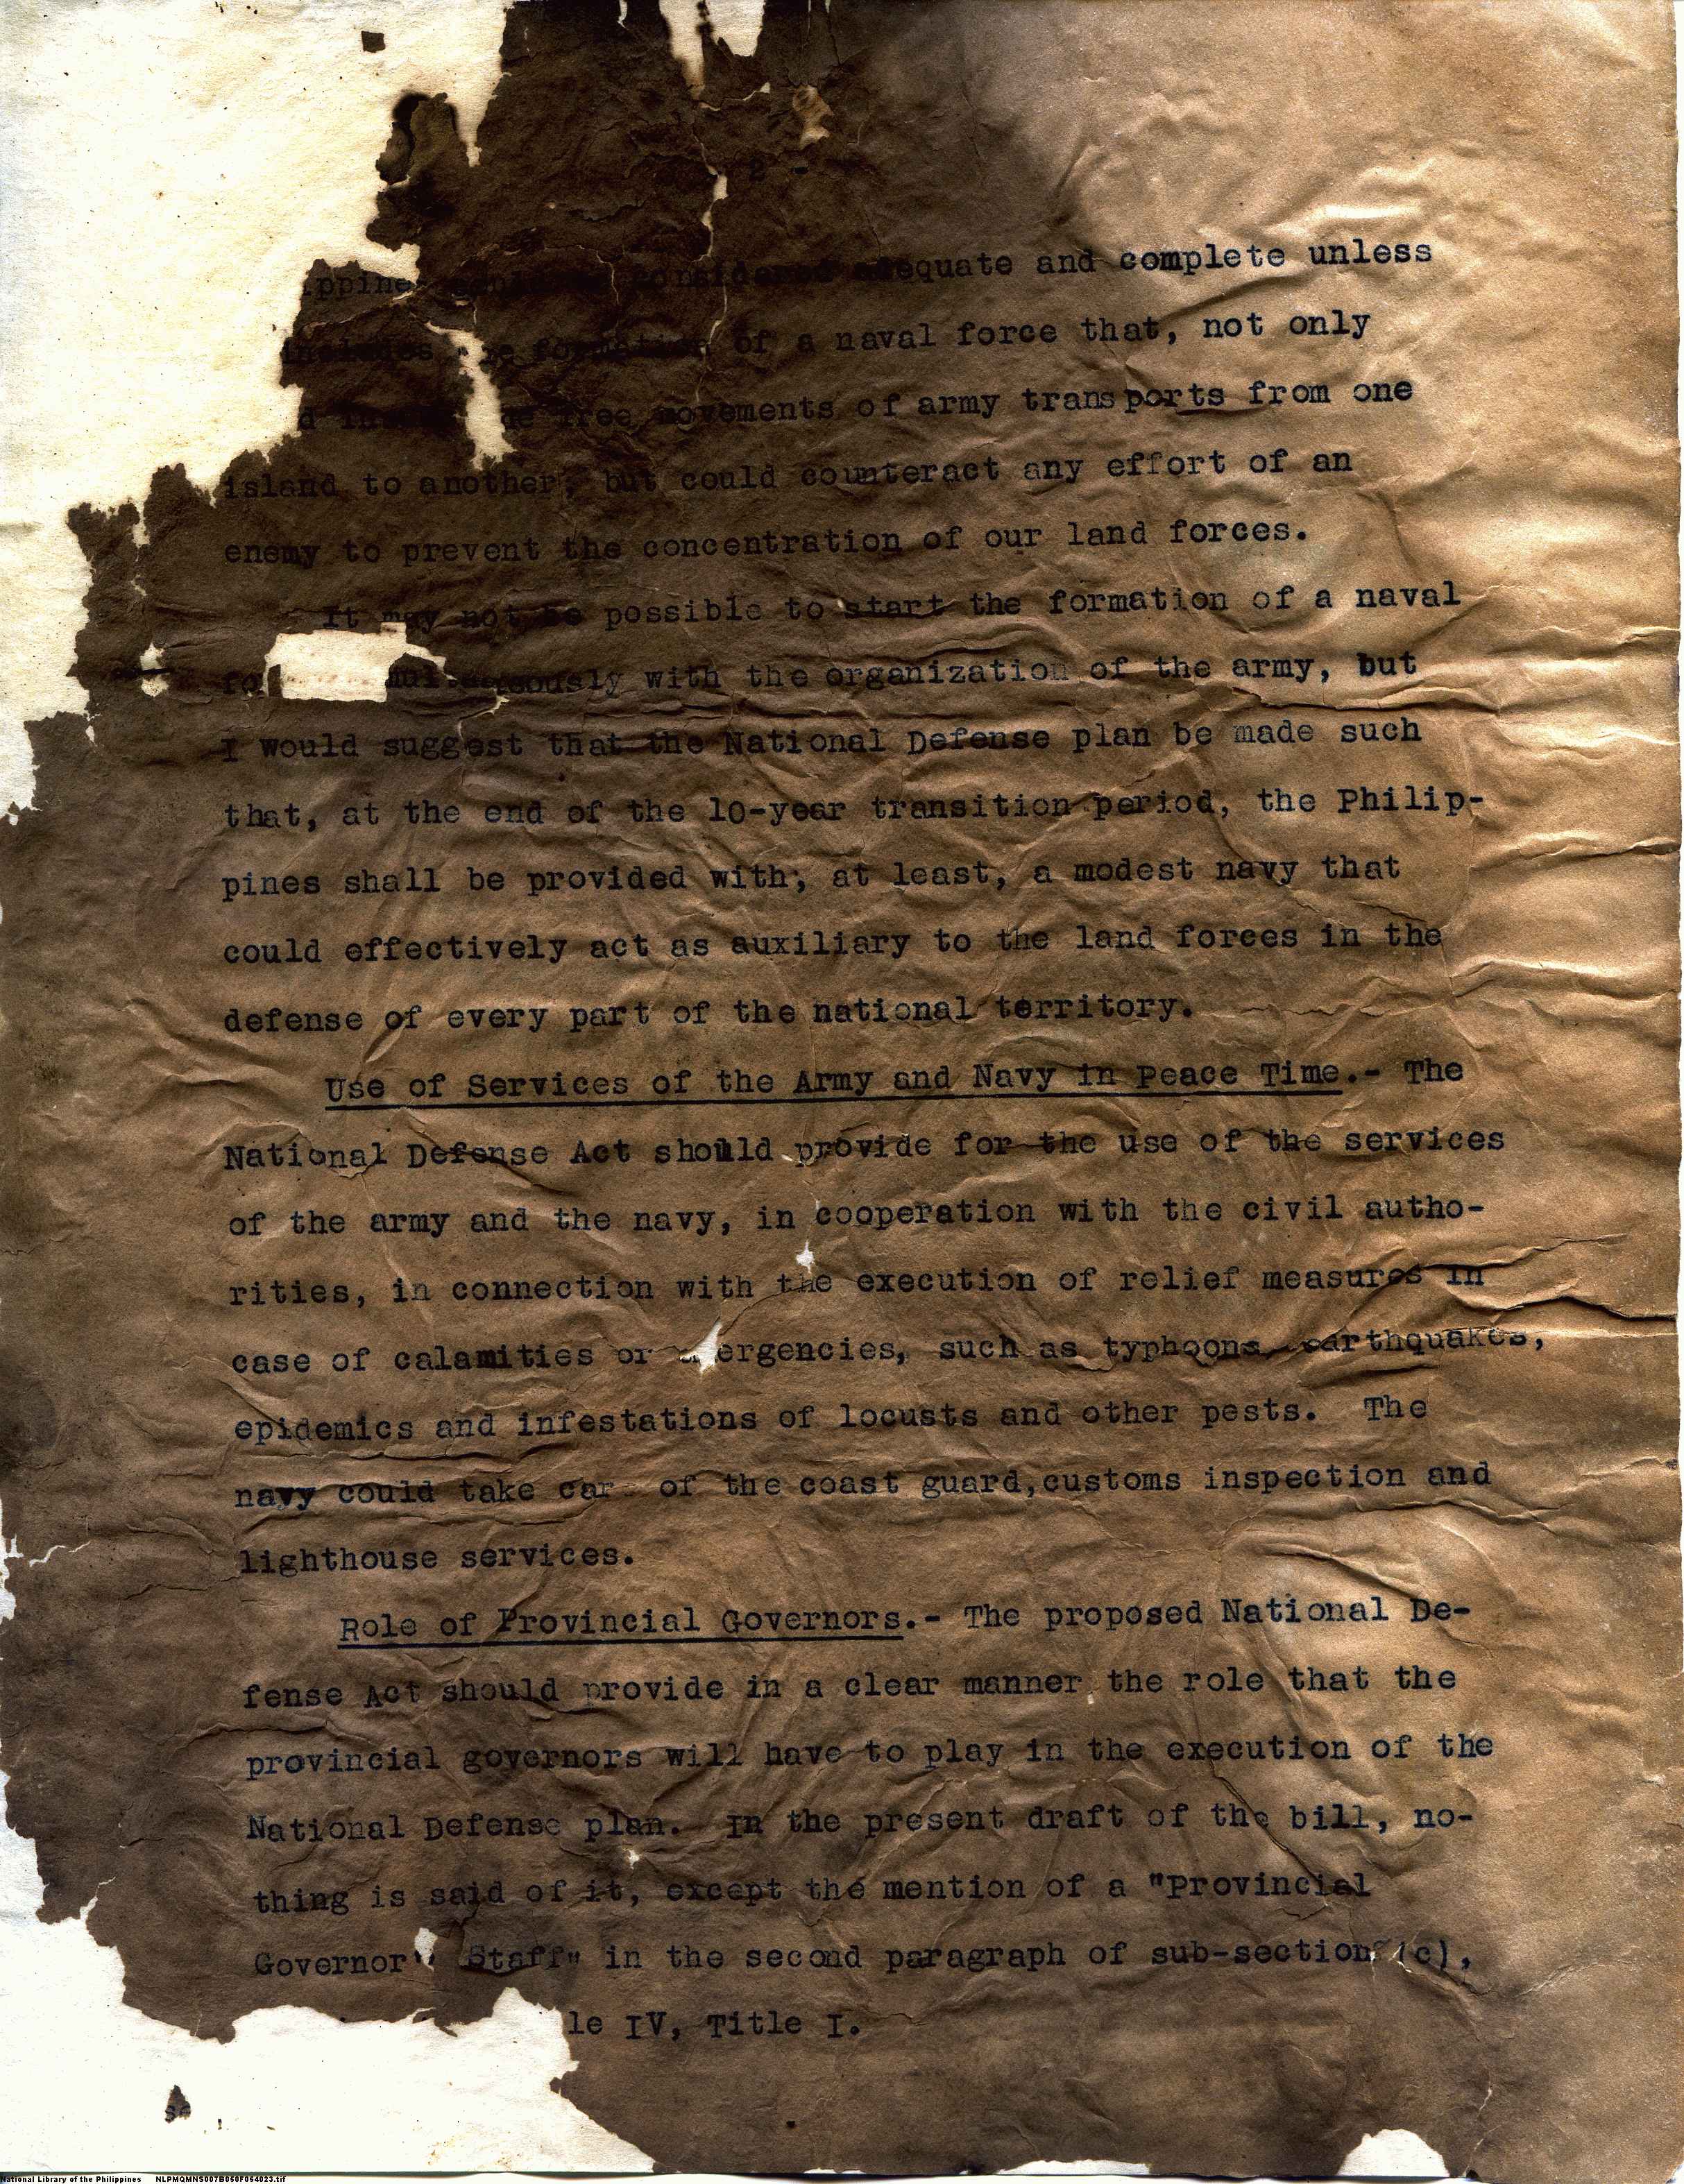 2 -
adequate and complete unless
formation of a naval force that, not only
free movements of army transports from one
island to another, but could counteract any effort of an
enemy to prevent the concentration of our land forces.
It may not be possible to start the formation of a naval
with the organization of the army, but
I would suggest that the National Defense plan be made such
that, at the end of the 10-year transition period, the Philip-
pines shall be provided with, at least, a modest navy that
could effectively act as auxiliary to the land forces in the
defense of every part of the national territory.
Use of Services of the Army and Navy in Peace Time.- The
National Defense Act should provide for the use of the services
of the army and the navy, in cooperation with the civil autho-
rities, in connection with the execution of relief measures in
case of calamities or ergencies, such as typhoons, earthquakes,
epidemics and infestations of locusts and other pests. The
navy could take car of the coast guard,customs inspection and
lighthouse services.
Role of Provincial Governors.- The proposed National De-
fense Act should provide in a clear manner the role that the
provincial governors will have to play in the execution of the
National Defense plan. In the present draft of the bill, no-
thing is said of it, except the mention of a "Provincial
Governor' Staff" in the second paragraph of sub-section (c),
le IV, Title I.
National Library of the Philippines NLPMQMNS007B050F054023.tif